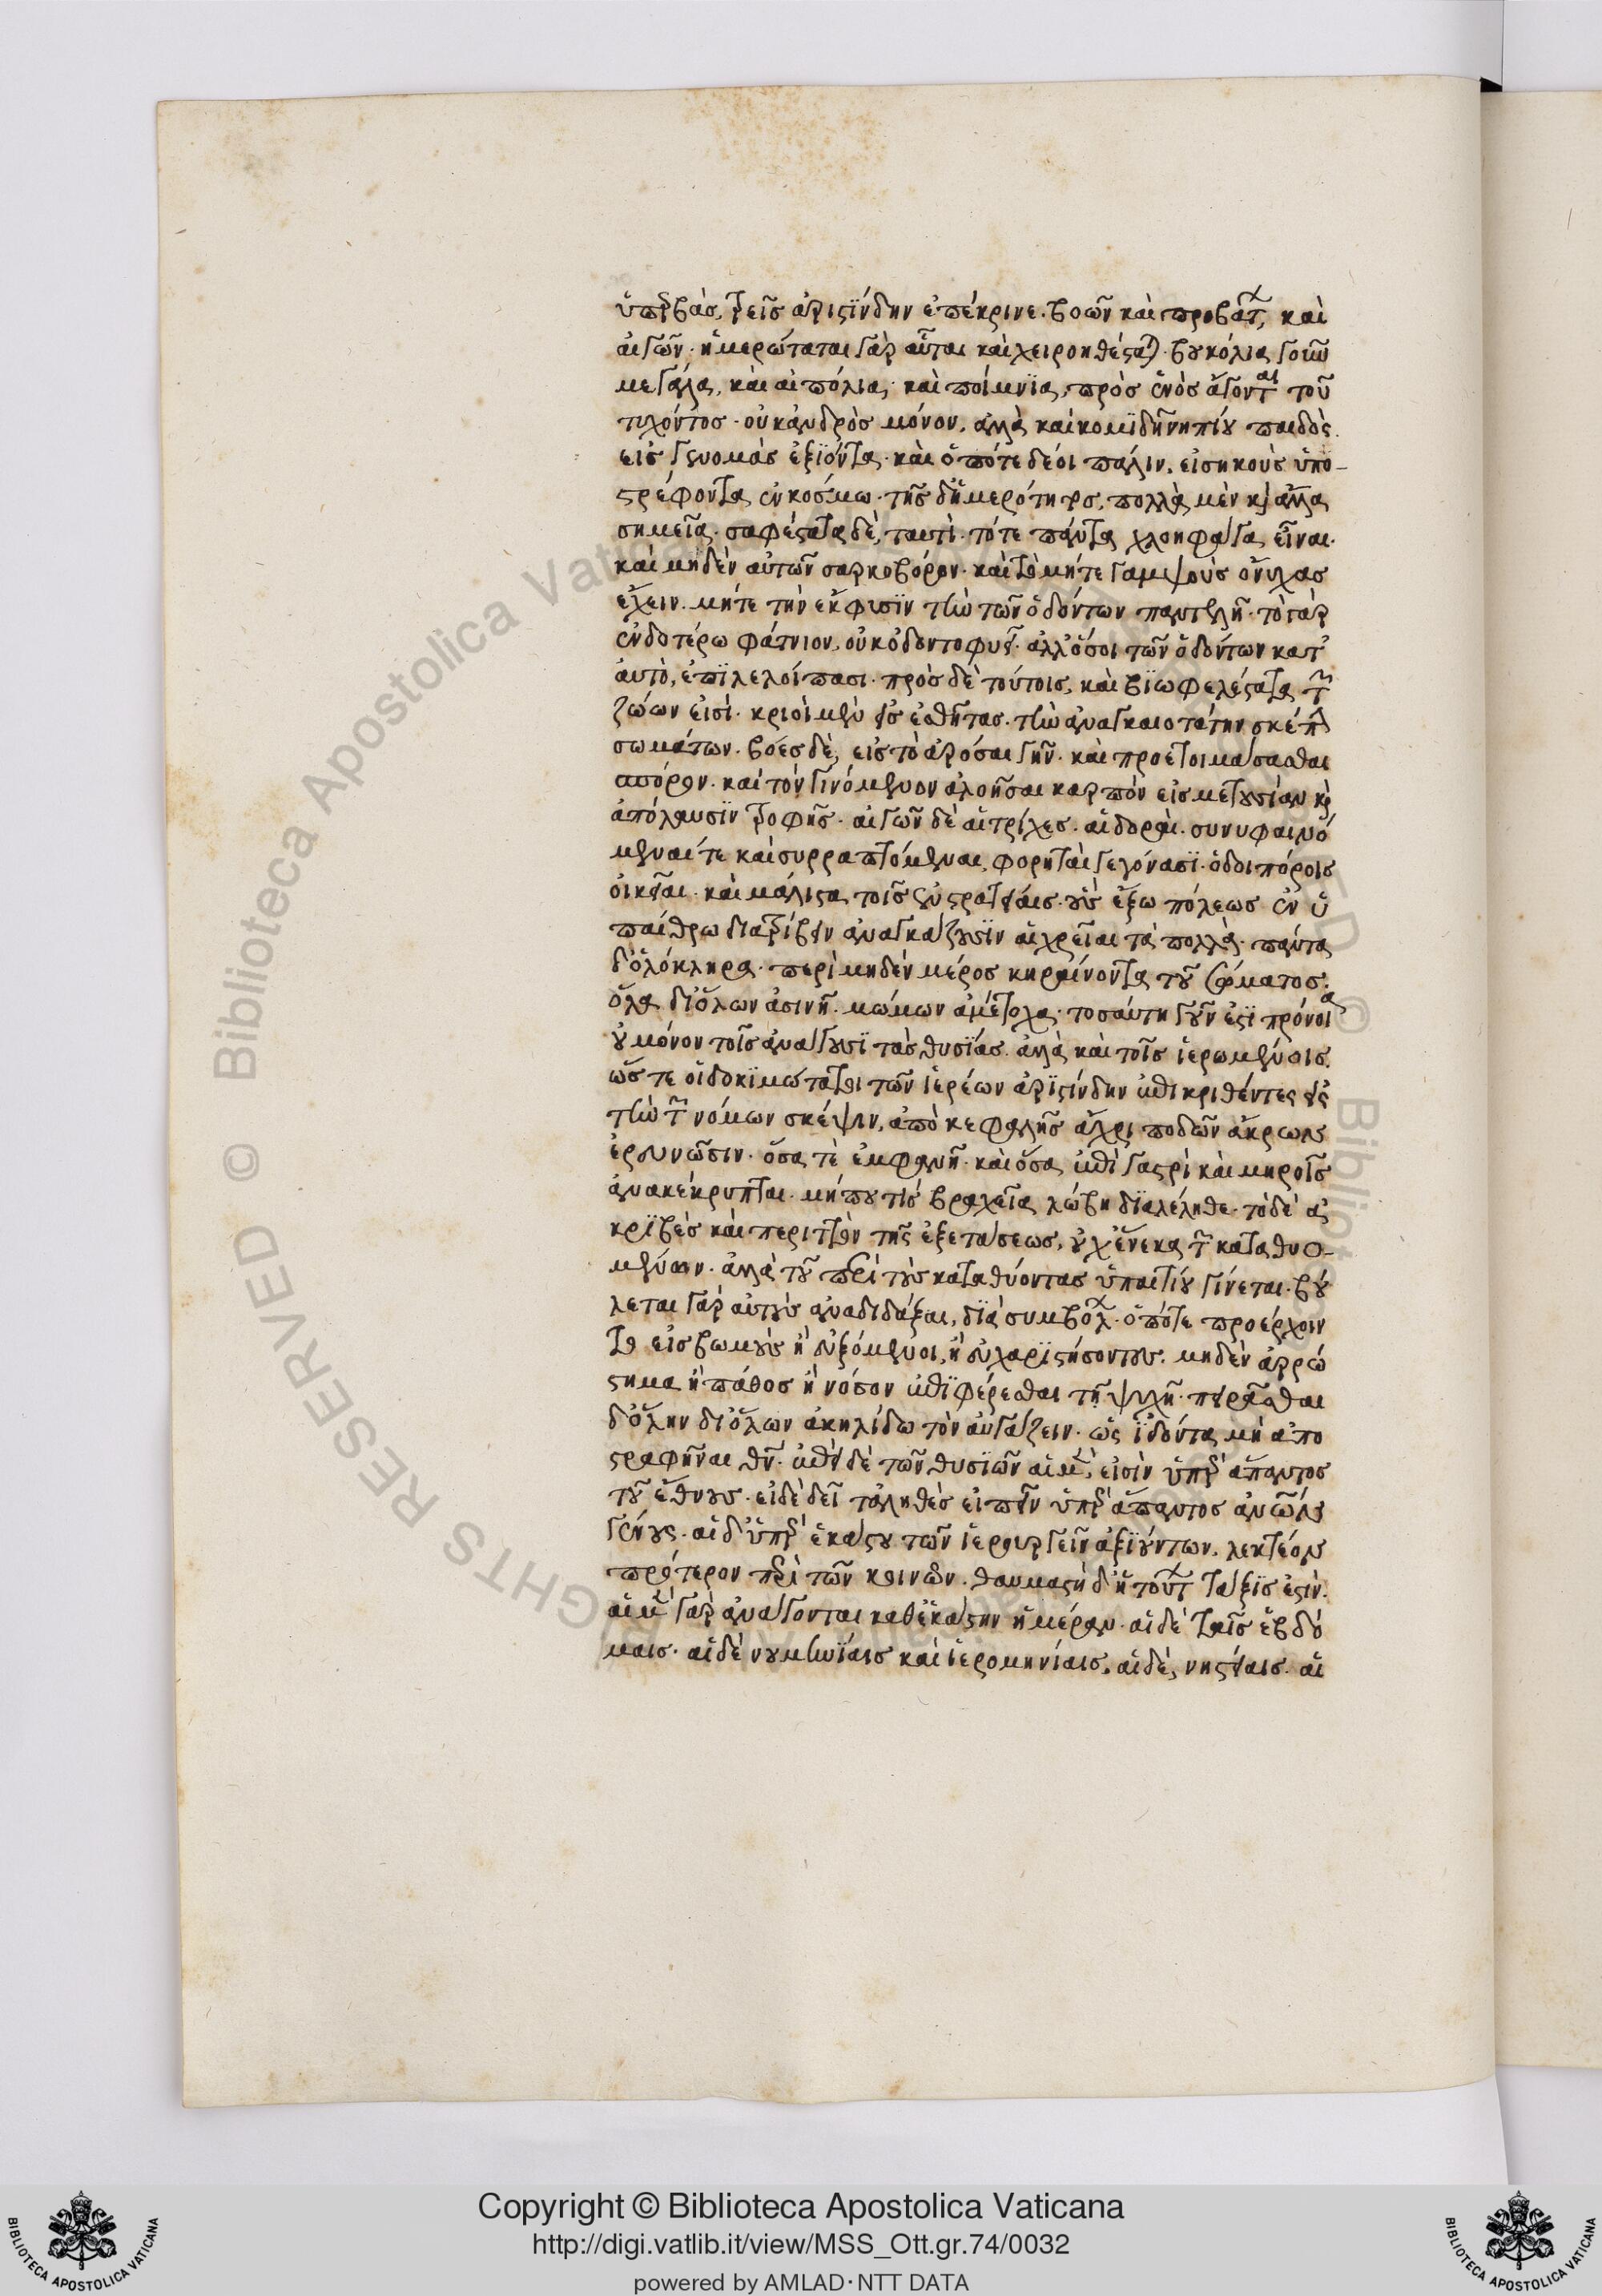 ὑπερβὰσ, τρεῖσ ἀριστίνδην ἐπέκρινε. βοῶν καὶ προβάτων, καὶ
αἰγῶν. ἡμερώταται γὰρ αὗται καὶ χειροηθέσταται. βουκόλια γοῦν
μεγάλα, καὶ αἰπόλια, καὶ ποίμνϊα, πρὸσ ἑνὸσ ἄγονται τοῦ
τυχόντοσ. οὐκ ἀνδρὸσ μόνον. ἀλλὰ καὶ κομϊδῆ νηπίου παιδὸς.
εἰσ νομὰσ ἐξϊόντα. καὶ ὁπότε δέοι πάλιν, εἰσ σηκοὺσ ὑπο-
στρέφοντα ἐν κόσμω. τῆσ δ' ἡμερότητοσ, πολλὰ μὲν καὶ ἄλλα
σημεῖα. σαφέστατα δὲ, ταυτὶ. τότε πάντα χλοηφάγα εἶναι.
καὶ μηδὲν αὐτῶν σαρκοβόρον. καὶ τὸ μήτε γαμψοὺσ ὄνυχασ
ἔχειν. μήτε τὴν ἔκφυσϊν τὴν τῶν ὀδόντων παντελῆ. τὸ γὰρ
ἐνδοτέρω φάτνιον, οὐκ ὀδοντοφυεῖ. ἀλλ' ὅσοι τῶν ὀδόντων κατ'
αὐτὸ, ἐπϊλελοίπασι. πρὸσ δὲ τούτοισ, καὶ βϊωφελέστατα τῶν
ζώων εἰσὶ. κριοὶ μὲν εἰσ ἐσθῆτασ. τὴν ἀναγκαιοτάτην σκέπην
σωμάτων. βόεσ δὲ, εἰσ τὸ ἀρόσαι γῆν. καὶ προετοιμάσασθαι
σπόρον. καὶ τὸν γινόμενον ἀλοῆσαι καρπὸν εἰσ μετουσίαν καὶ
ἀπόλαυσϊν τροφῆσ. αἰγῶν δὲ αἱ τρίχεσ. αἱ δοραὶ. συνυφαινό
μεναί τε καὶ συρραπτόμεναι, φορηταὶ γεγόνασϊ. ὁδοιπόροισ
οἰκίαι. καὶ μάλιστα τοῖσ ἐν στρατείαισ. οὓσ ἔξω πόλεωσ ἐν ὑ
παίθρω διατρίβειν ἀναγκάζουσϊν αἱ χρεῖαι τὰ πολλὰ. πάντα
δ' ὁλόκληρα. περὶ μηδὲν μέροσ κηραίνοντα τοῦ σώματοσ.
ὅλα δι' ὅλων ἀσινῆ. μώμων ἀμέτοχα. τοσαύτη γοῦν ἐστϊ πρόνοια
οὐ μόνον τοῖσ ἀνάγουσϊ τὰσ θυσϊάσ. ἀλλὰ καὶ τοῖσ ἱερωμένοισ.
ὥστε οἱ δοκϊμώτατοι τῶν ἱερέων ἀρϊστίνδην ἐπικριθέντες εἰς
τὴν τῶν νόμων σκέψιν, ἀπὸ κεφαλῆσ ἄχρι ποδῶν ἄκρων
ἐρευνῶσιν. ὅσα τὲ ἐμφανῆ. καὶ ὅσα ἐπὶ γαστρὶ καὶ μηροῖσ
ἀνακέκρυπται. μήπου τισ βραχεῖα λώβη δϊαλέληθε. τὸ δὲ ἀ
κρϊβὲσ καὶ περιττὸν τῆς ἐξετάσεωσ, οὐχ ἕνεκα τῶν καταθυο-
μένων. ἀλλὰ τοῦ περὶ τοὺσ καταθύοντασ ὑπαιτίου γίνεται. βού
λεται γὰρ αὐτοὺσ ἀναδιδάξαι, δϊὰ συμβόλων. ὁπότε προέρχοιν
το εἰσ βωμοὺσ ἢ εὐξόμενοι, ἢ εὐχαρϊστήσοντεσ. μηδὲν ἀρρώ
στημα ἢ πάθοσ ἢ νόσον ἐπϊφέρεσθαι τῆ ψυχῆ. πειρᾶσθαι
δ' ὅλην δι' ὅλων ἀκηλίδωτον ἁγιάζειν. ὡς ἰδόντα μὴ ἀπο
στραφῆναι θν. ἐπεὶ δὲ τῶν θυσϊῶν αἱ μέν, εἰσὶν ὑπὲρ ἅπαντοσ
τοῦ ἔθνουσ. εἰ δὲ δεῖ τἀληθὲσ εἰπεῖν ὑπὲρ ἅπαντοσ ἀνων
γένους. αἱ δ' ὑπὲρ ἑκάστου τῶν ἱερουργεῖν ἀξϊούντων. λεκτέον
πρότερον περὶ τῶν κοινῶν. θαυμαστὴ δ' ἡ τούτων τάξϊσ ἐστὶν.
αἱ μὲν γὰρ ἀνάγονται καθ' ἑκάστην ἡμέραν. αἱ δὲ ταῖσ ἑβδό
μαισ. αἱ δὲ νουμηνίαισ καὶ ἱερομηνίαισ, αἱ δὲ, νηστείαισ. αἱ
Copyright © Biblioteca Apostolica Vaticana
http://digi.vatlib.it/view/MSS_Ott.gr.74/0032
powered by AMLAD·NTT DATA